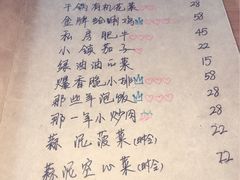 干锅有机花菜 28
金牌蛤蜊鸡 58
私房肥牛 45
小锅茄子 22
绿油油一菜 15
爆香脆小排 58
那些年泡饭 28
那一年小炒肉 28
蒜泥菠菜(时令) 22
蒜泥空心菜(时令) 22